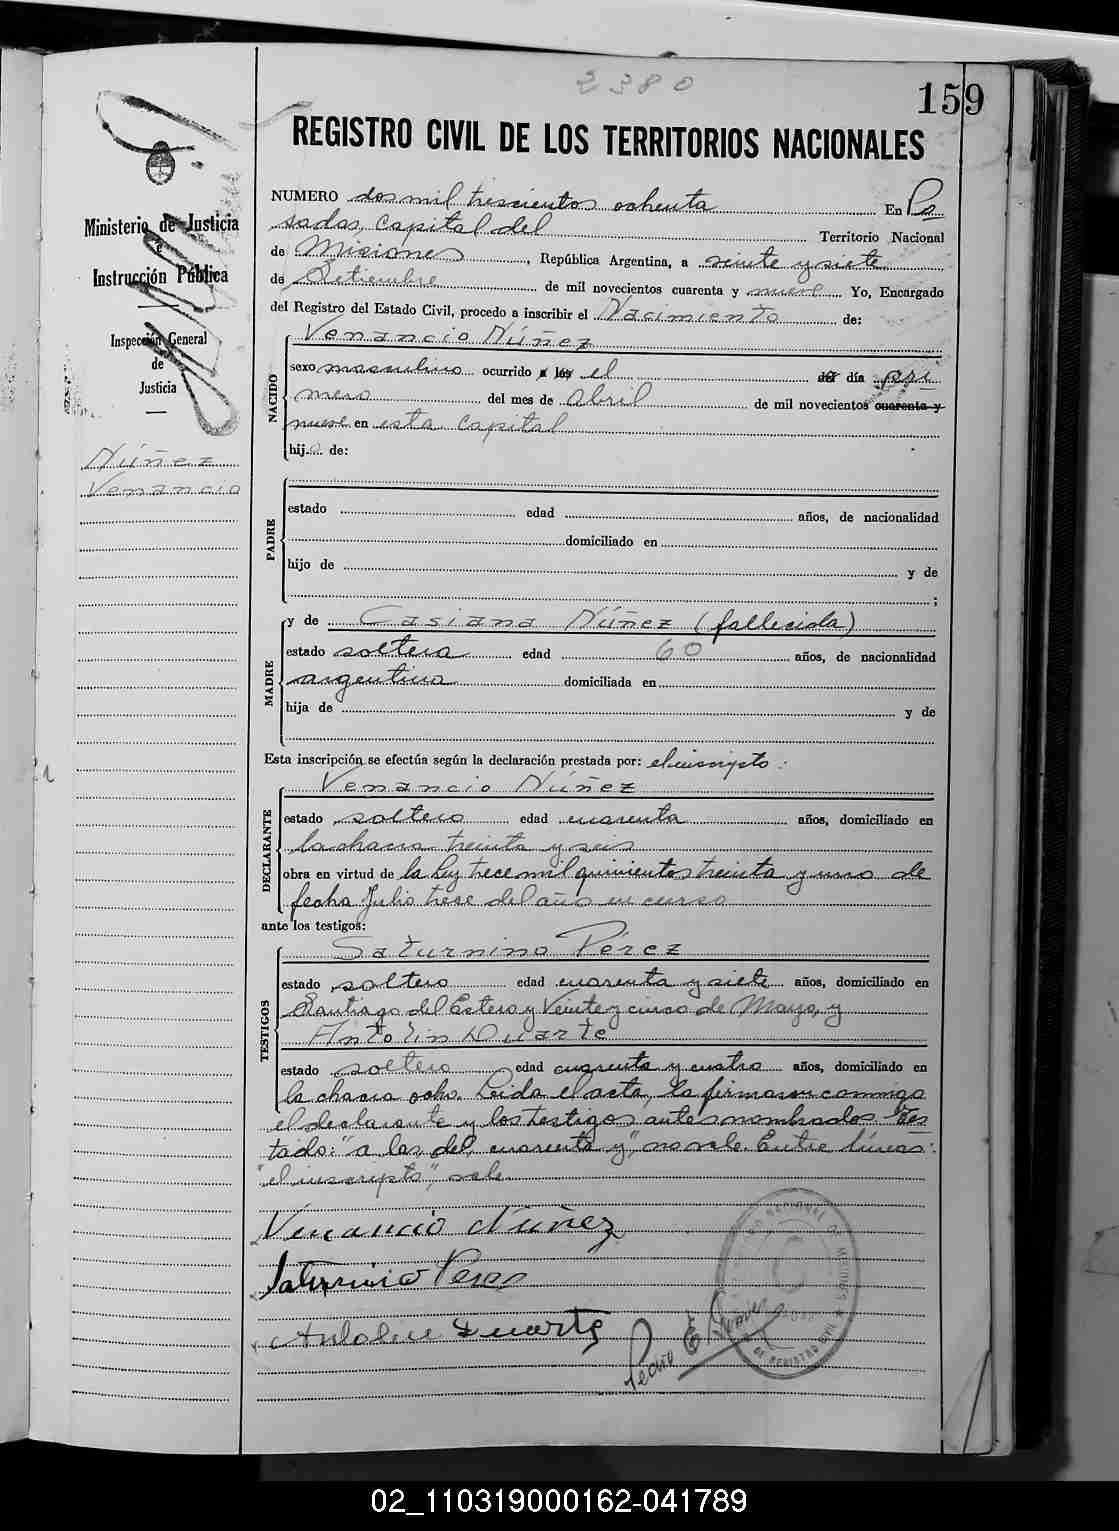 2380
159
REGISTRO CIVIL DE LOS TERRITORIOS NACIONALES
Ministerio de Justicia
e
Instrucción Pública
Inspección General
de
Justicia
Núñez
Venancio
NUMERO dos mil trescientos ochenta En Po
sadas, capital del Territorio Nacional
de Misiones, República Argentina, a veinte y siete
de Setiembre de mil novecientos cuarenta y nueve Yo, Encargado
del Registro del Estado Civil, procedo a inscribir el Nacimiento de:
NACIDO
Venancio Núñez
sexo masculino ocurrido a las el del día pri
mero del mes de abril de mil novecientos cuarenta y
nueve en esta capital
hijo de:
PADRE
estado edad años, de nacionalidad
domiciliado en
hijo de y de
;
MADRE
y de Casiana Núñez (fallecida)
estado soltera edad 60 años, de nacionalidad
argentina domiciliada en
hija de y de
Esta inscripción se efectúa según la declaración prestada por: el inscripto:
DECLARANTE
Venancio Núñez
estado soltero edad cuarenta años, domiciliado en
la chacra treinta y seis
obra en virtud de la ley trece mil quinientos treinta y uno de
fecha Julio trese del año en curso
ante los testigos:
TESTIGOS
Saturnino Pérez
estado soltero edad cuarenta y siete años, domiciliado en
Santiago del Estero y Veinte y cinco de Mayo, y
Antolin Duarte
estado soltero edad cuarenta y cuatro años, domiciliado en
la chacra ocho. Leida el acta, la firmaron conmigo
el declarante y los testigos antes nombrados. Tes
tado: "a las, del, cuarenta y", no vale. Entre líneas:
"el inscripto", vale.
Venancio Núñez
Saturnino Peres
Antolin Duarte
Pedro E.
DE REGISTRO CIVIL
02_110319000162-041789